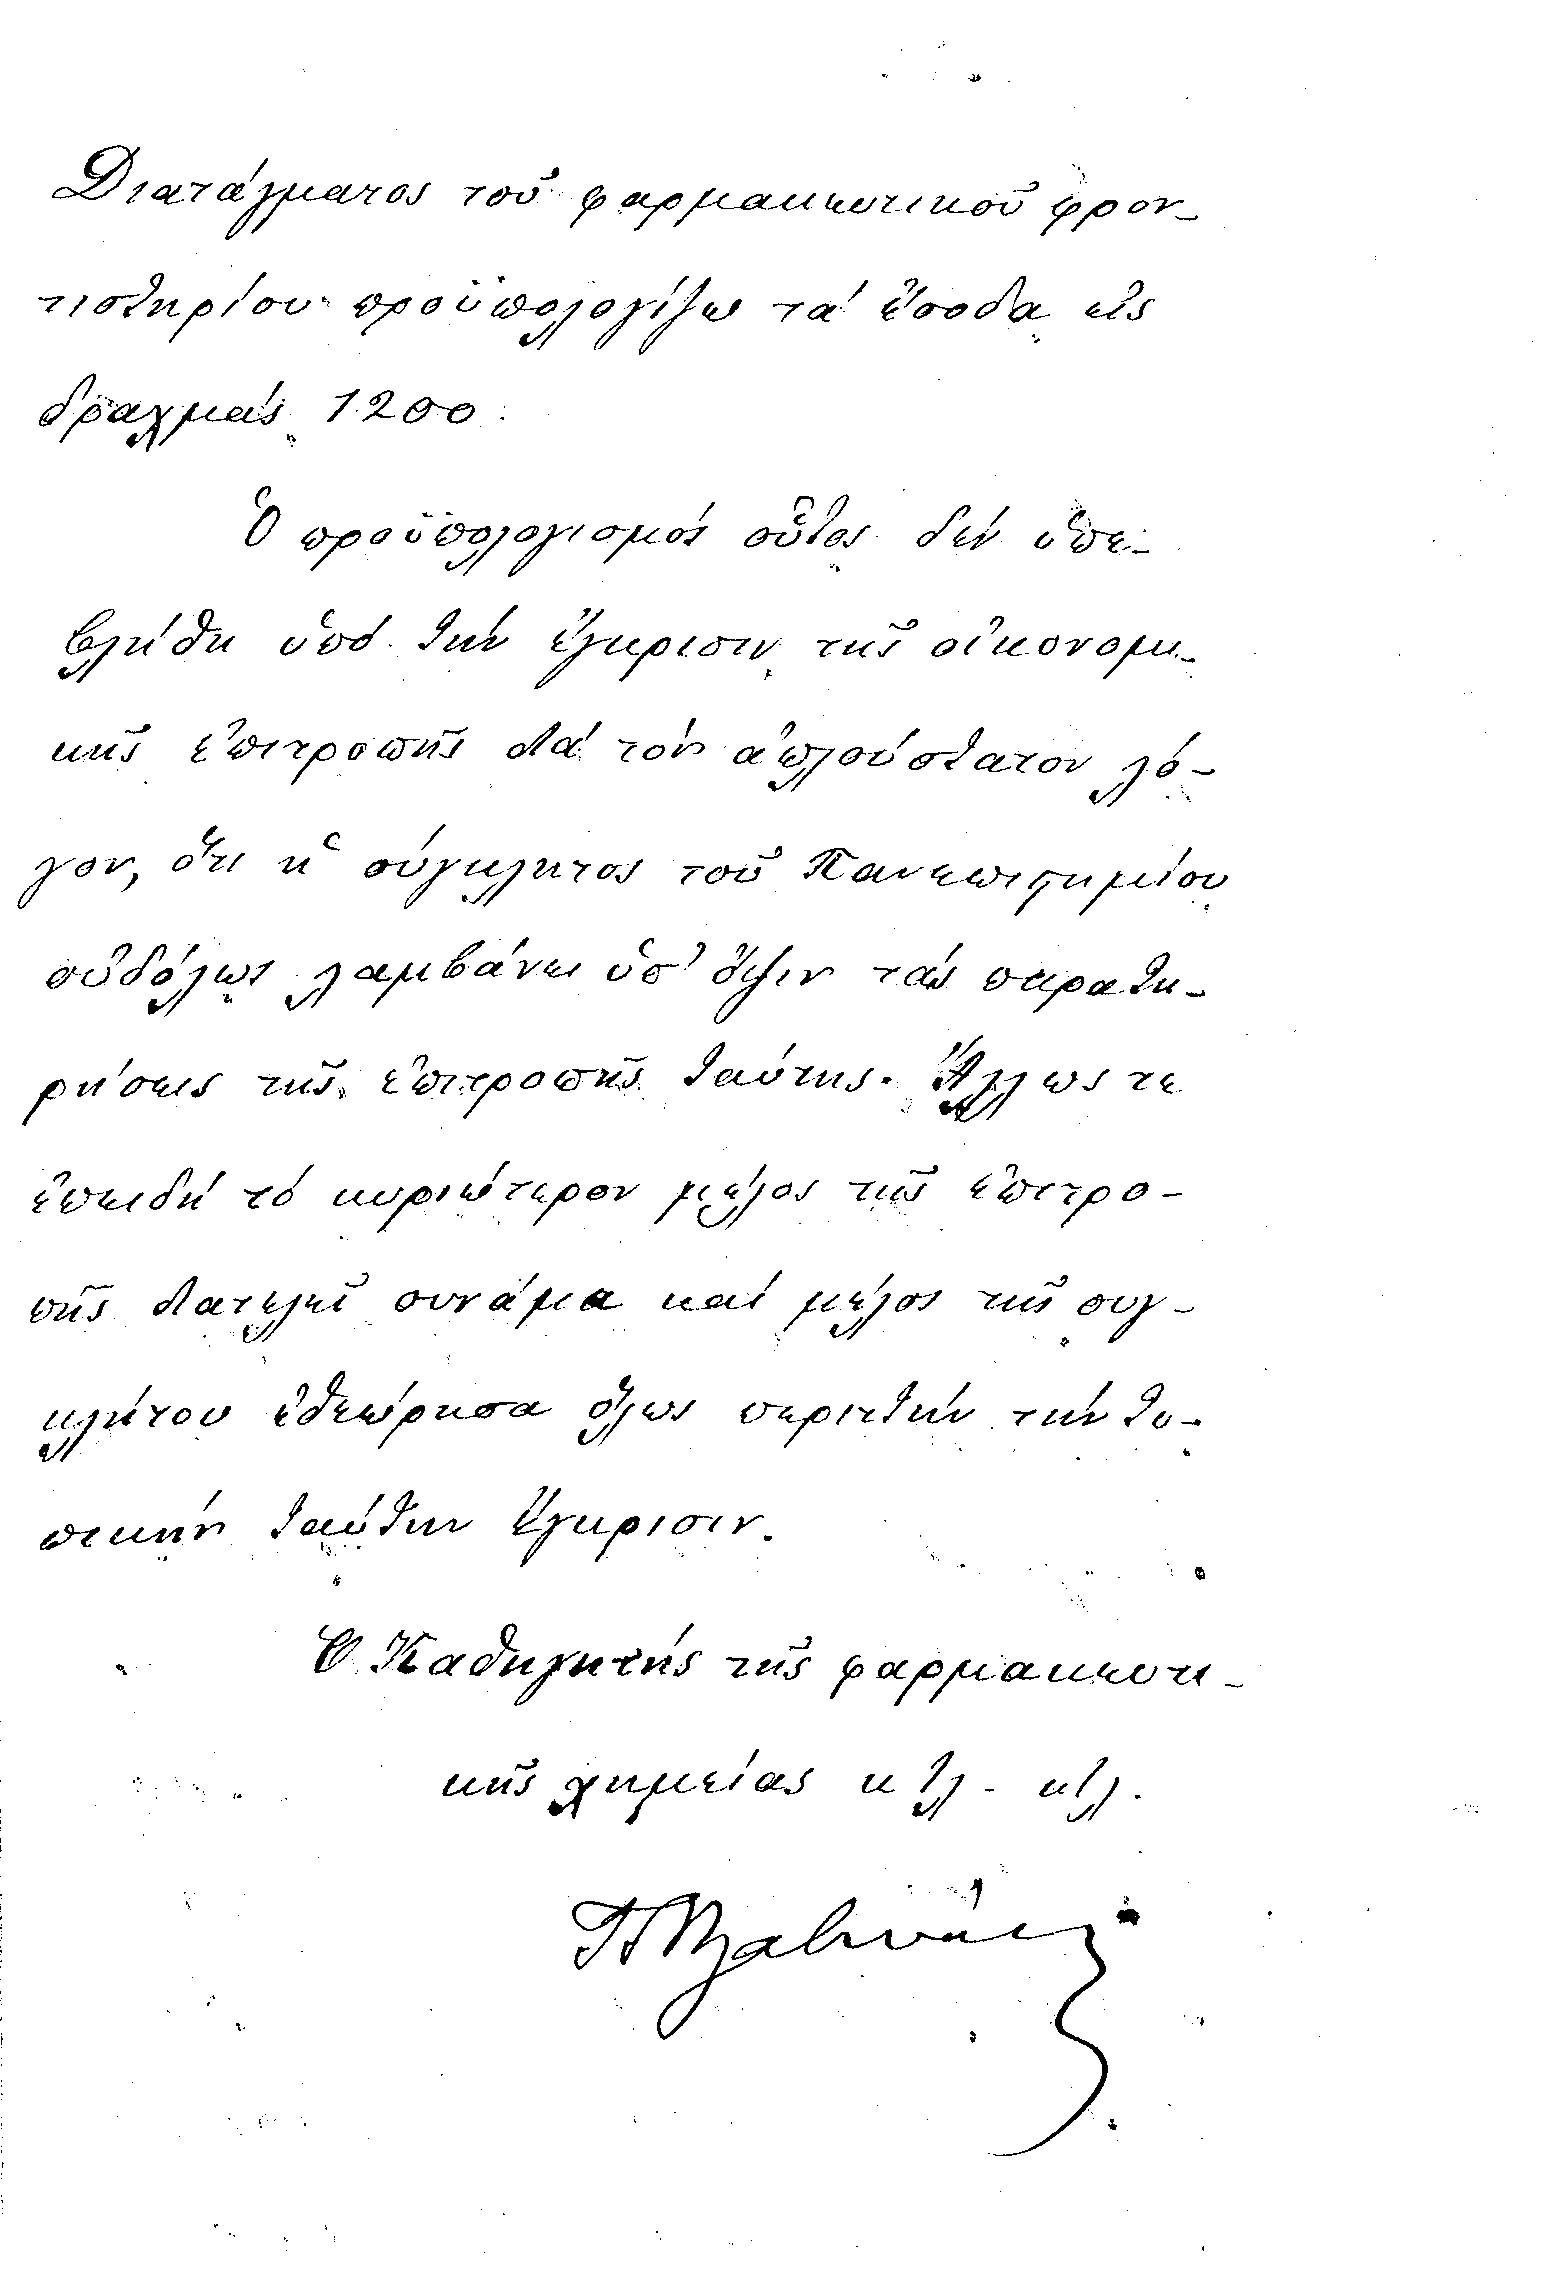 Διατάγματος τοῦ φαρμακευτικοῦ φρον-
τιστηρίου προϋπολογίζω τά ἔσοδα εἰς
δραχμάς 1200.
Ὁ προϋπολογισμός οὗτος δέν ὑπε-
βλήθη ὑπό τήν ἔγκρισιν τῆς οἰκονομι-
κῆς ἐπιτροπῆς διά τόν ἁπλούστατον λό-
γον, ὅτι ἡ σύγκλητος τοῦ Πανεπιστημίου
οὐδόλως λαμβάνει ὑπ' ὄψιν τάς παρατη-
ρήσεις τῆς ἐπιτροπῆς ταύτης. Ἄλλως τε
ἐπειδή τό κυριώτερον μέλος τῆς ἐπιτρο-
πῆς διατελεῖ συνάμα καί μέλος τῆς συγ-
κλήτου ἐθεώρησα ὅλως περιττήν τήν τυ-
πικήν ταύτην ἔγκρισιν.
Ὁ Καθηγητής τῆς φαρμακευτι-
κῆς χημείας κτλ. κτλ.